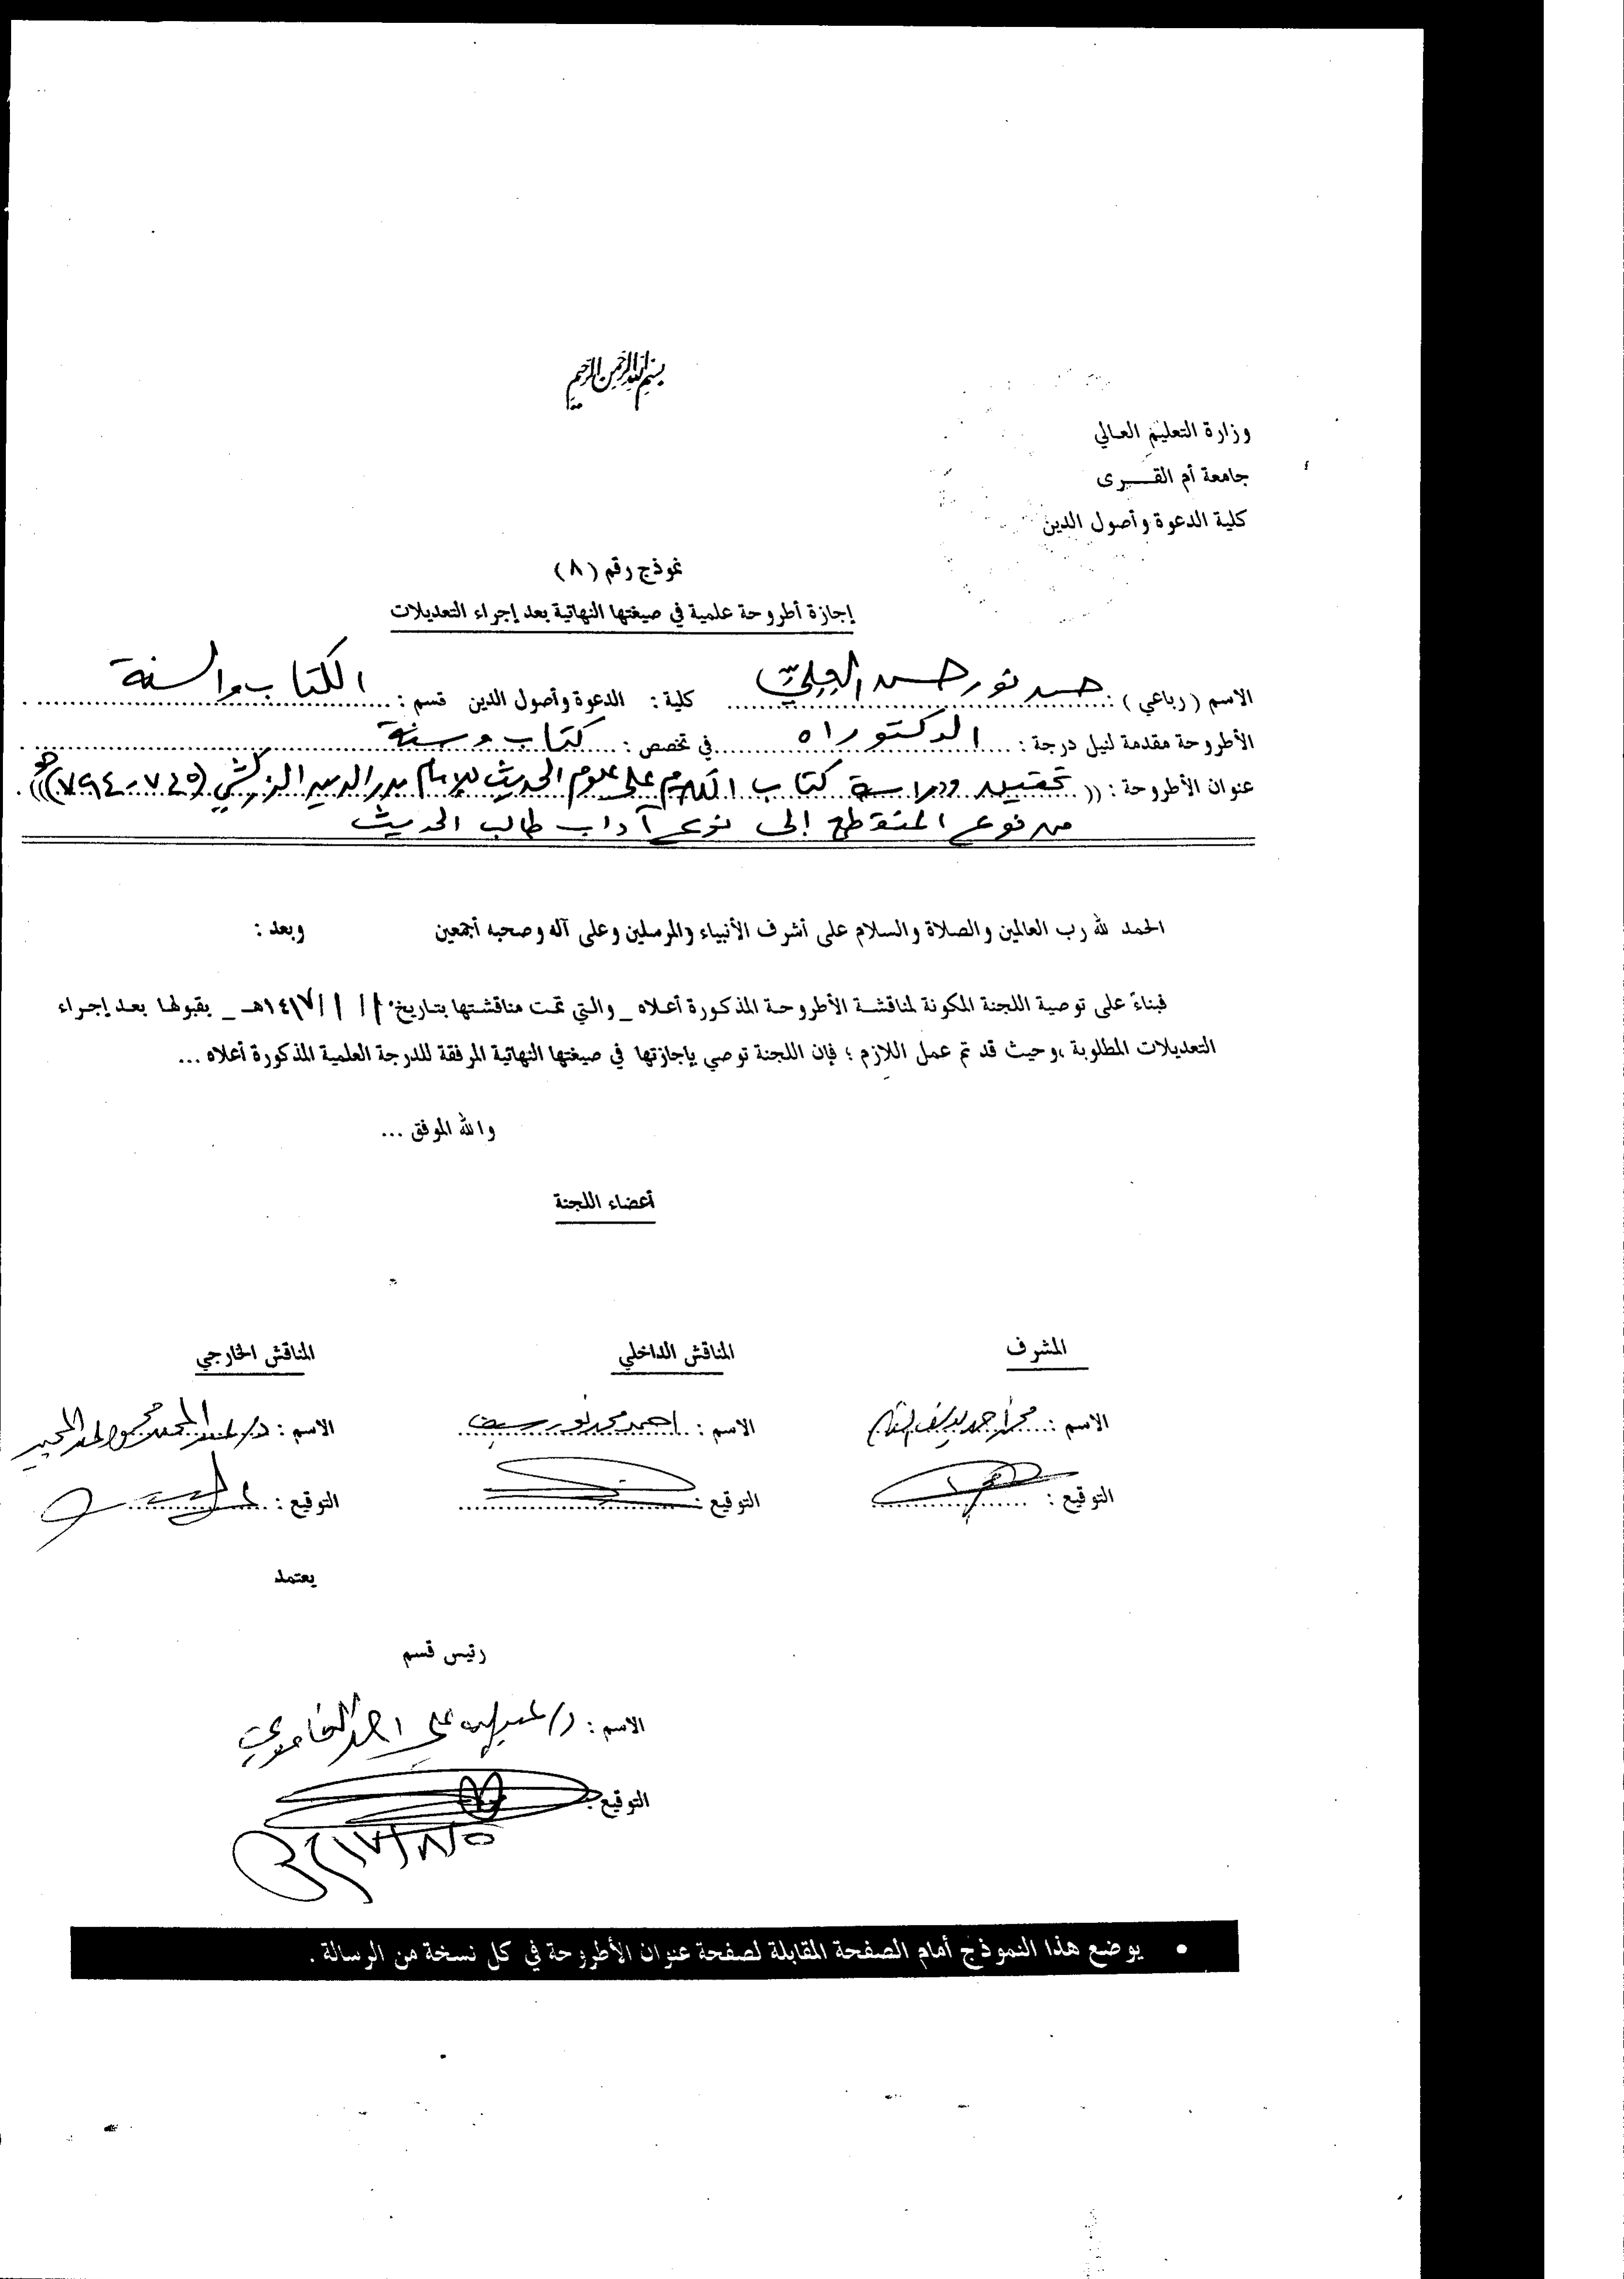 بسم الله الرحمن الرحيم
وزارة التعليم العالي
جامعة أم القــــرى
كلية الدعوة وأصول الدين
نموذج رقم (٨)
إجازة أطروحة علمية في صيغتها النهائية بعد إجراء التعديلات
الاسم ( رباعي ) : حسن نور حسن العلي كلية : الدعوة وأصول الدين قسم : الكتاب والسنة
الأطروحة مقدمة لنيل درجة : الدكتوراه في تخصص : كتاب وسنة
عنوان الأطروحة : (( تحقيق ودراسة كتاب الكلام على علوم الحديث للإمام بدر الدين الزركشي (٧٤٥-٧٩٤) هـ ))
من نوع المنقطع إلى نوع آداب طالب الحديث
الحمد لله رب العالمين والصلاة والسلام على أشرف الأنبياء والمرسلين وعلى آله وصحبه أجمعين وبعد :
فبناءً على توصية اللجنة المكونة لمناقشـة الأطروحـة المذكـورة أعـلاه _ والـتي تمـت مناقشـتها بتـاريخ / / ١٤١٧هـ _ بقبولهـا بعـد إجـراء
التعديلات المطلوبة ،وحيث قد تم عمل اللازم ؛ فإن اللجنة توصي بإجازتها في صيغتها النهائية المرفقة للدرجة العلمية المذكورة أعلاه ...
والله الموفق ...
أعضاء اللجنة
المشرف المناقش الداخلي المناقش الخارجي
الاسم : محمد أحمد يوسف القاسم الاسم : احمد محمد نور سيف الاسم : د/ عبد
التوقيع : التوقيع : التوقيع :
يعتمد
رئيس قسم
الاسم : د/ علي احمد الغامدي
التوقيع :
• يوضع هذا النموذج أمام الصفحة المقابلة لصفحة عنوان الأطروحة في كل نسخة من الرسالة .